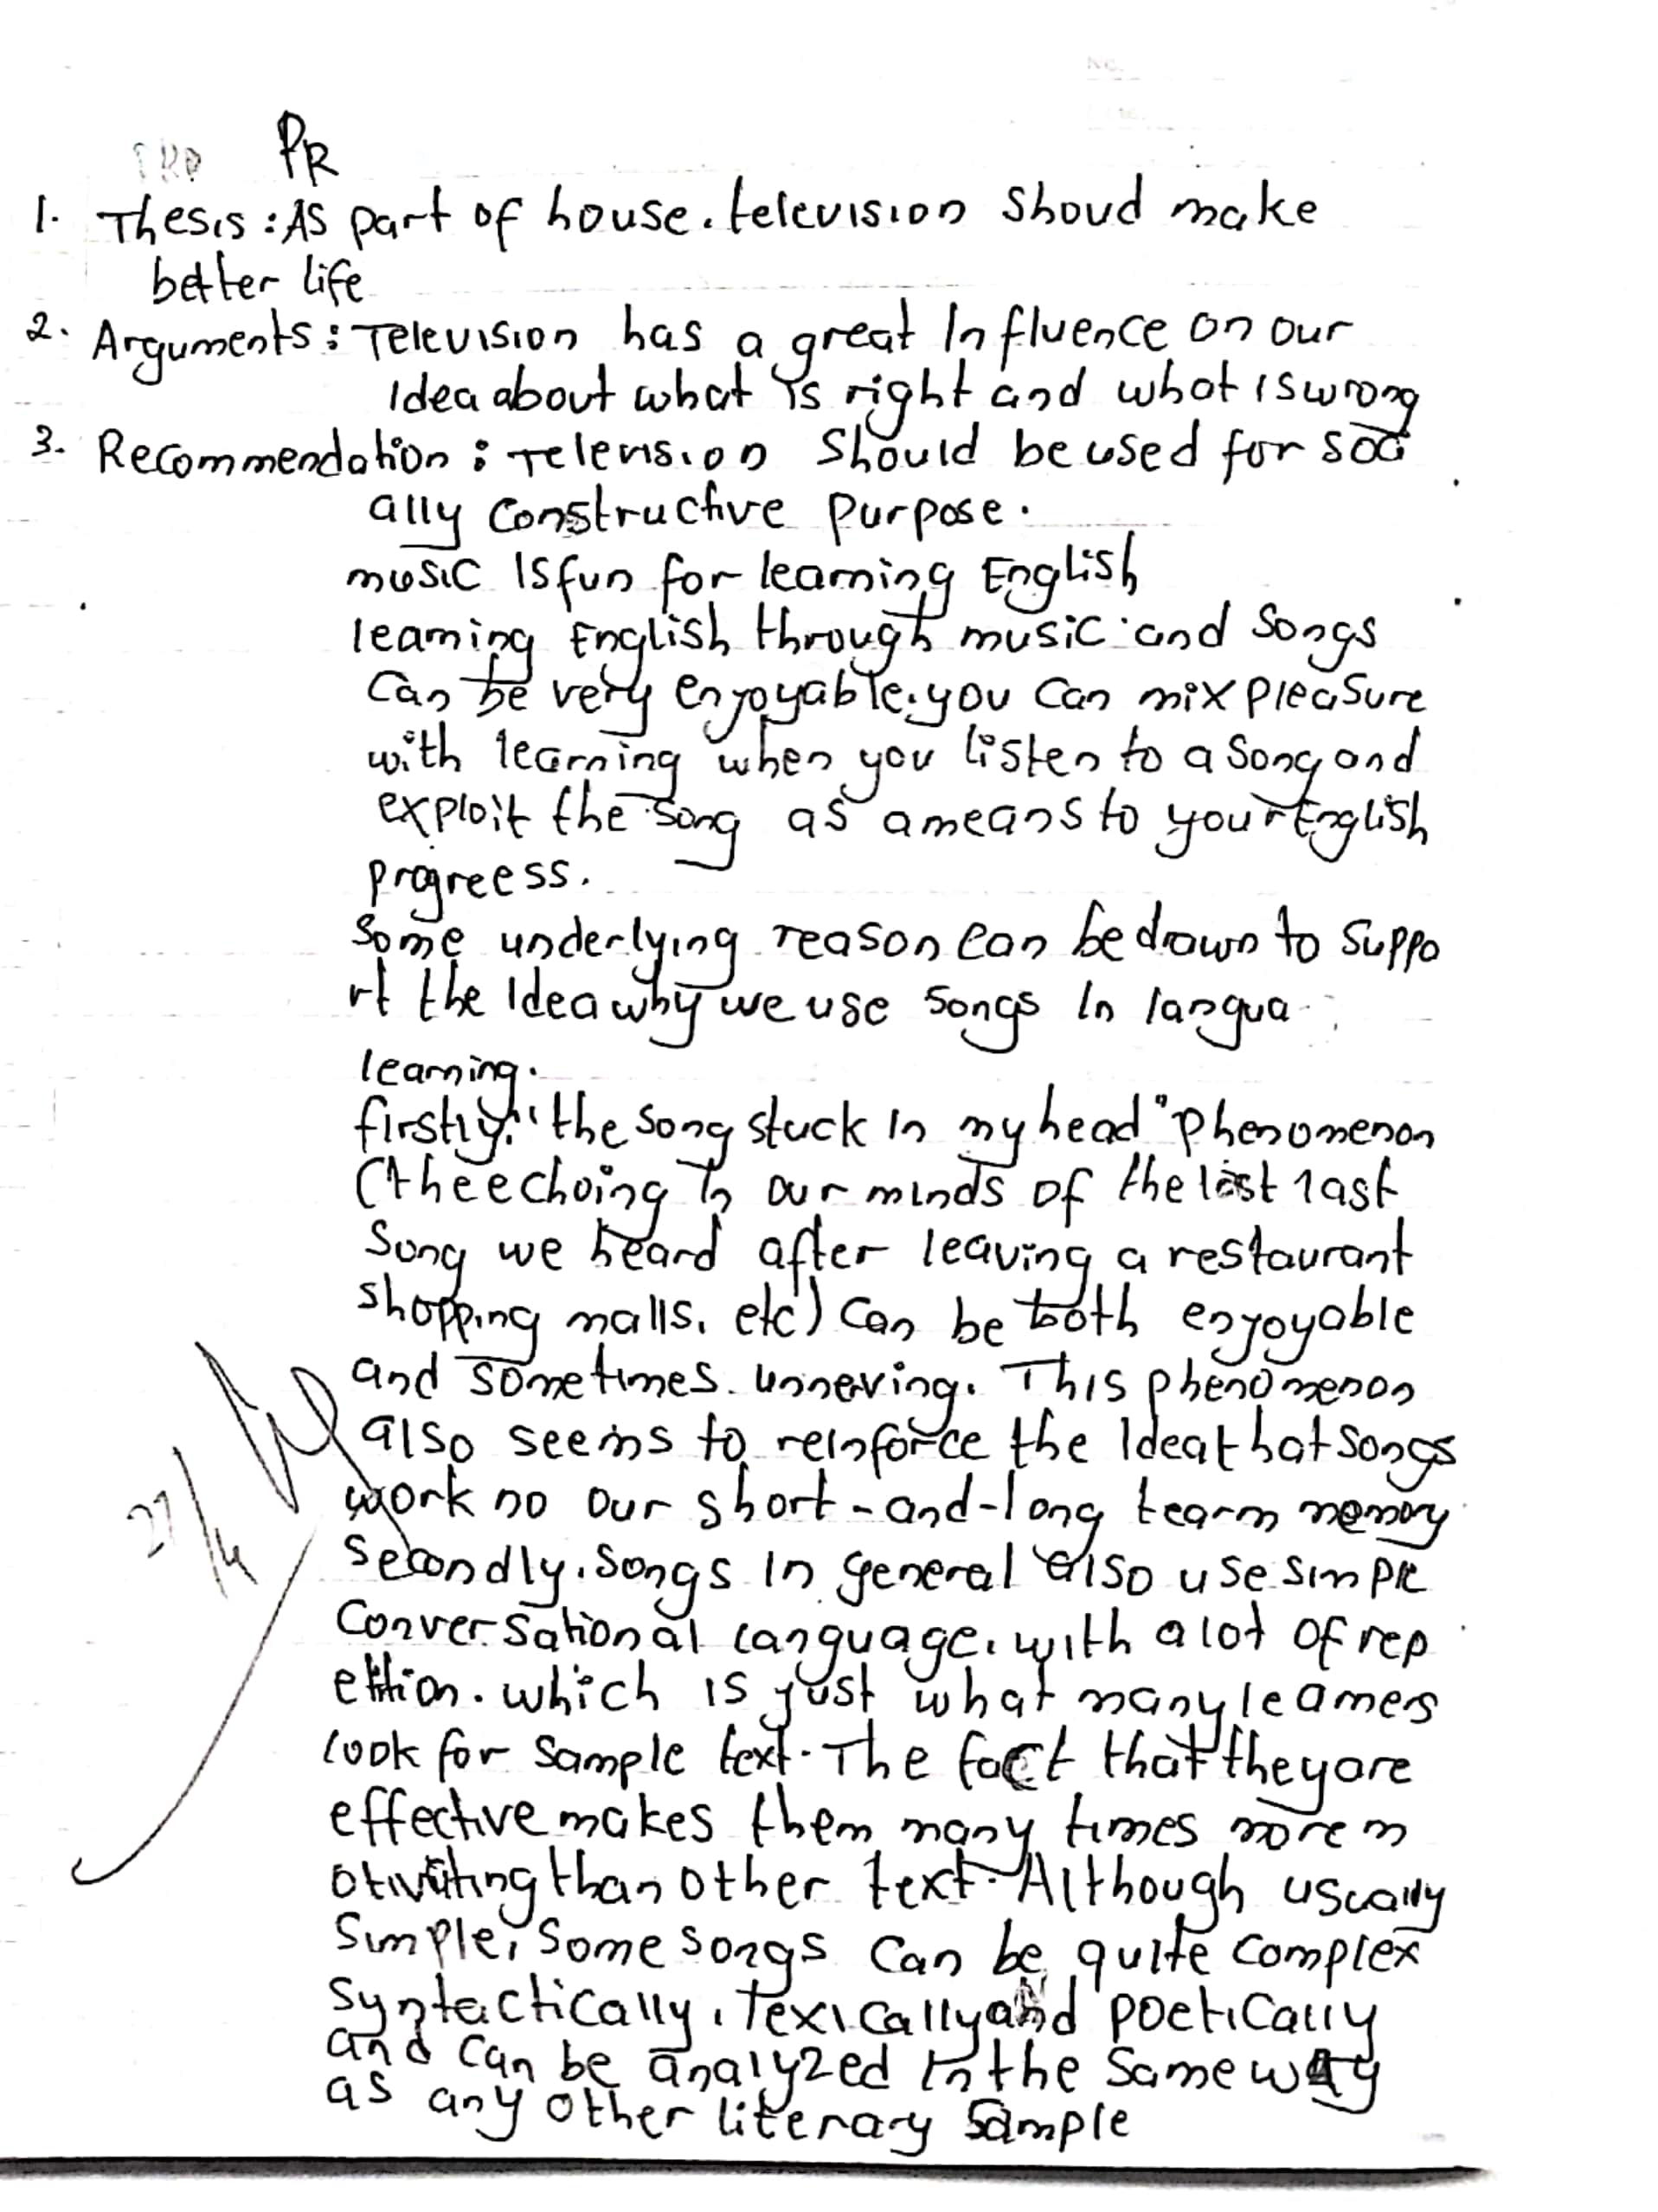 PR
1. Thesis : As part of house. television shoud make
better life
2. Arguments : Television has a great Influence on our
Idea about what is right and what is wrong
3. Recommendation : Television should be used for soci
ally constructive purpose.
music Is fun for learning English
learning English through music and songs
can be very enjoyable. you can mix pleasure
with learning when you listen to a song and
exploit the song as a means to your English
progreess.
Some underlying reason can be drawn to suppo
rt the Idea why we use songs In langua
learning.
firstly. "the song stuck In my head" phenomenon
(the echoing In our minds of the last last
Song we heard after leaving a restaurant
shopping malls, etc) can be both enjoyable
and sometimes. unnerving. This phenomenon
also seems to reinforce the Idea that songs
work no our short-and-long tearm memory
Secondly, songs In general also use simple
Conversational language, with a lot of rep
etition. which is just what many learners
look for sample text. The fact that they are
effective makes them many times more m
otivating than other text. Although usually
Simple, some songs can be quite complex
syntactically, lexically and poetically
and can be analyzed In the same way
as any other literary sample
27/4